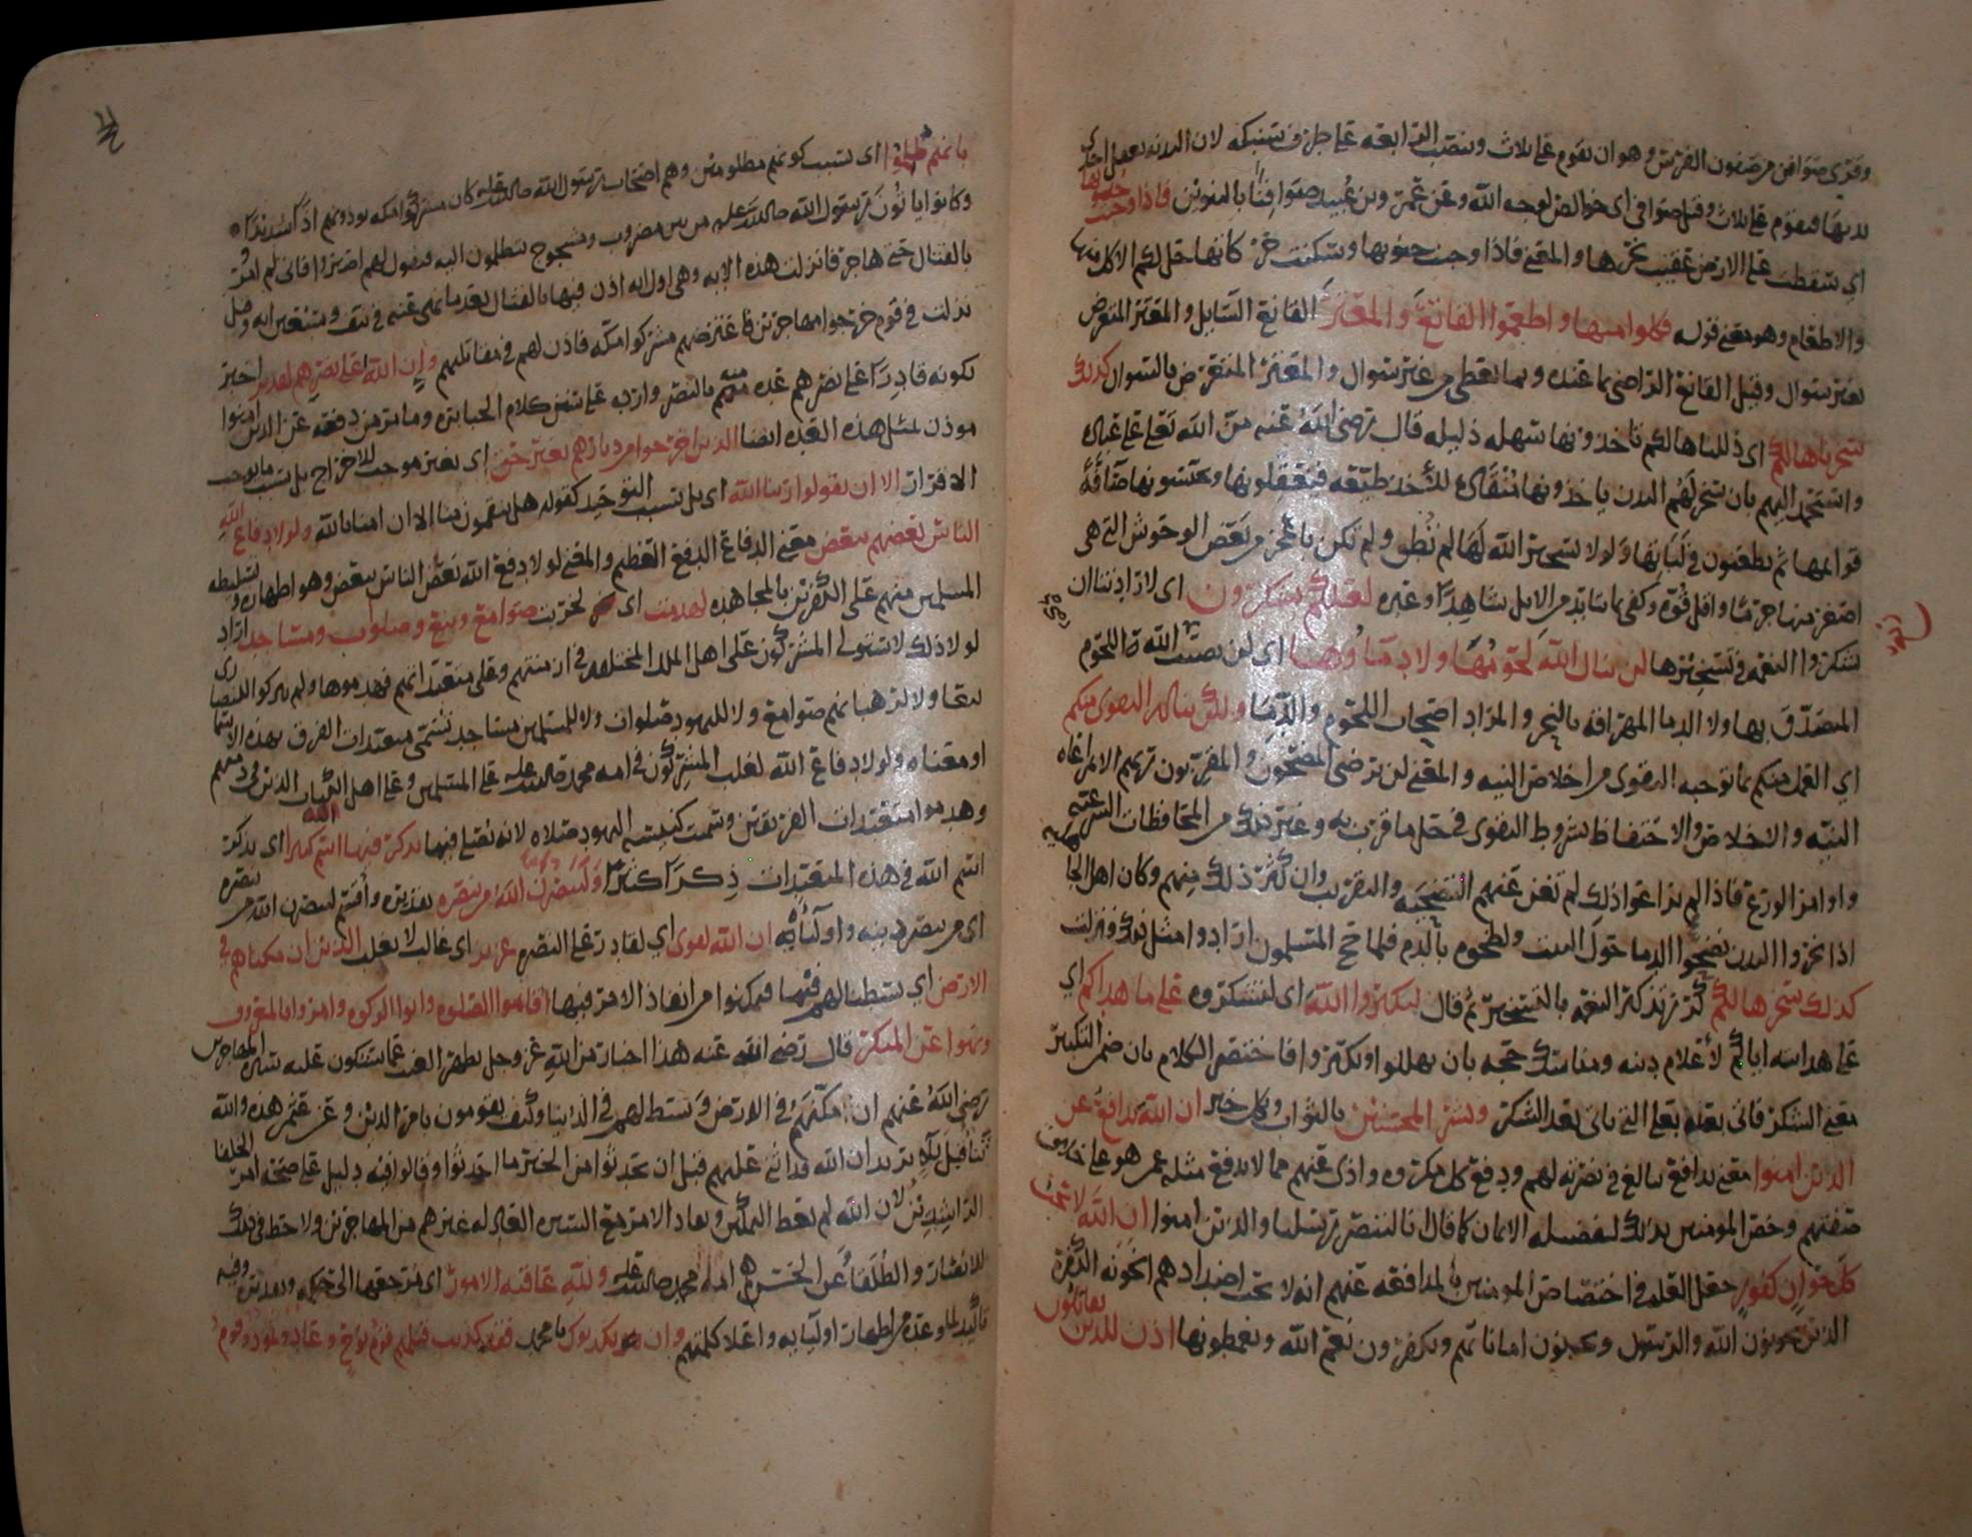 وقرئ صوافن من صفون الفرس وهو ان تقوم على ثلاث وتنصب الرابعة على طرف سنبكه لان البدنه تعقل احدى
يديها فتقوم على ثلاث وقرئ صوافي اى خوالص لوجه الله وعن عمرو بن عبيد صوافنا بالتنوين فاذا وجبت جنوبها
اي سقطت على الارض عقيب نحرها والمعنى فاذا وجبت جنوبها وسكنت حركاتها حل لكم الاكل منها
والاطعام وهو معنى قوله فكلوا منها واطعموا القانع والمعتر القانع السايل والمعتر المتعرض
بغير سوال وقيل القانع الراضى بما عنده وبما يعطى من غير سوال والمعتر المتعرض بالسوال كذلك
سخرناها لكم اى ذللناها لكم تاخذونها سهله ذليله قال رضى الله عنه منّ الله تعالى على عباده
واستحمد اليهم بان سخر لهم البدن ياخذونها منقادة للأخذ طيعة فيعقلونها ويحبسونها صافّة
قوايمها ثم يطعنون في لباتها ولولا تسخير الله لها لم تُطق ولم تكن باعجز من بعض الوحوش التى هى
اصغر منها جرما واقل قوة وكفى بما يتابد من الابل شاهدا وعبره لعلكم تشكرون اى لارادتنا ان
تشكروا النعمه في تسخيرها لن ينال الله لحومها ولا دماؤها اى لن يصيب الله اللحوم
المتصدّق بها ولا الدما المهراقة بالنحر والمراد اصحاب اللحوم والدما ولكن يناله التقوى منكم
اي العمل منكم بما توجبه التقوى من اخلاص النيه والمعنى لن يرضى المضحون والمقربون ربهم الا بمراعاه
النيّه والاخلاص والاحتفاظ بشروط التقوى في حل ما قرب به وغير ذلك من المحافظات الشرعيه
واوامر الورع فاذا لم يراعوا ذلك لم تغن عنهم التضحيه والتقريب وان كثر ذلك منهم وكان اهل الجا
اذا نحروا البدن نضحوا الدما حول البيت ولطخوه بالدم فلما حج المسلمون ارادوا مثل ذلك فنزلت
كذلك سخرها لكم كرر تذكير النعمه بالتسخير ثم قال لتكبروا الله اى لتشكروه على ما هداكم اي
على هدايته اياكم لأعلام دينه ومناسك حجه بان تهللوا وتكبروا فاختصر الكلام بان ضمن التكبير
معنى الشكر وبشر المحسنين بالثواب ان الله يدافع عن
الذين امنوا معنى يدافع يبالغ في نصرته لهم ودفع كل مكروه واذى عنهم مما لا يدفع مثله
صفتهم وخص المومنين بذلك لفضيله الايمان كما قال انا لننصر رسلنا والذين امنوا ان الله لا يحب
كل خوان كفور جعل العله في اختصاص المومنين بالمدافعه عنهم انه لا يحب اضدادهم الخونه الكفرة
الذين يخونون الله والرسول ويخونون اماناتهم ويكفرون نعم الله ويغمطونها اذن للذين يقاتلون
بانهم ظلموا اى بسبب كونهم مظلومين وهم اصحاب رسول الله كان مشركوا مكه يوذونهم اذى شديدا
وكانوا ياتون رسول الله من بين مضروب ومشجوج يتظلمون اليه فيقول لهم اصبروا فانى لم اومر
بالقتال حتى هاجر فانزلت هذه الايه وهى اول ايه اذن فيها بالقتال بعد ما نهى عنه في نيف وسبعين ايه وقيل
نزلت في قوم خرجوا مهاجرين فاعترضهم مشركوا مكّه فاذن لهم في مقاتلتهم وان الله على نصرهم لقدير اخبر
بكونه قادرا على نصرهم عده منه لهم بالنصر وارد على سنن كلام الجبابره وما مر من دفعه عن الذين امنوا
موذن بمثل هذه العدة ايضا الذين اخرجوا من ديارهم بغير حق اى بغير موجب للاخراج بل بسبب ما يوجب
الاقرار الا ان يقولوا ربنا الله اى بل بسبب التوحيد كقوله هل تنقمون منا الا ان امنا بالله ولولا دفاع الله
الناس بعضهم ببعض معنى الدفاع الدفع العظيم والمعنى لولا دفع الله بعض الناس ببعض وهو اظهاره وتسليطه
المسلمين منهم على الكفرين بالمجاهده لهدمت اى لخربت صوامع وبيع وصلوات ومساجد اراد
لولا ذلك لاستولى المشركون على اهل الملل المختلفه في ازمنتهم وعلى متعبداتهم فهدموها ولم يتركوا للنصارى
بيعا ولا لرهبانهم صوامع ولا لليهود صلوات ولا للمسلمين مساجد تسمى متعبدات الفرق بهذه الاسما
او معناه ولولا دفاع الله لغلب المشركون في امه محمد على المسلمين وعلى اهل الكتاب الذين في ذمتهم
وهدموا متعبدات الفريقين وسميت كنيسه اليهود صلاه لانه يصلى فيها يذكر فيها اسم الله كثيرا اى يذكر
اسم الله في هذه المتعبدات ذكرا كثيرا ولينصرن الله من ينصره تقديره وأقسم لينصرن الله من ينصره
اى من ينصر دينه واوليآئه ان الله لقوى اي لقادر على النصر عزيز اى غالب لا يغلب الذين ان مكناهم في
الارض اي بسطنا لهم فيها فتمكنوا من انفاذ الامر فيها اقاموا الصلوه واتوا الزكوه وامروا بالمعروف
ونهوا عن المنكر قال رضى الله عنه هذا اخبار من الله عز وجل بظهر الغيب عما ستكون عليه سيره المهاجرين
رضى الله عنهم ان مكّنهم في الارض وبسط لهم في الدنيا وكيف يقومون بامر الدين وعن عثمن هذه والله
ثناء قبل بلاء يريد ان الله قد اثنى عليهم قبل ان يحدثوا من الخير ما احدثوا وقالوا فيه دليل على صحه امر الخلفا
الراشدين لان الله لم يعط التمكين ونفاذ الامر مع السيره العادله غيرهم من المهاجرين ولا حظ في ذلك
للانصار والطلقاء عن الحسن هم امة محمد ولله عاقبه الامور اى مرجعها الى حكمه وتقديره وفيه
تاكيد لما وعده من اظهار اوليايه واعلاء كلمتهم وان يكذبوك يا محمد فقد كذبت قبلهم قوم نوح وعاد وثمود وقوم